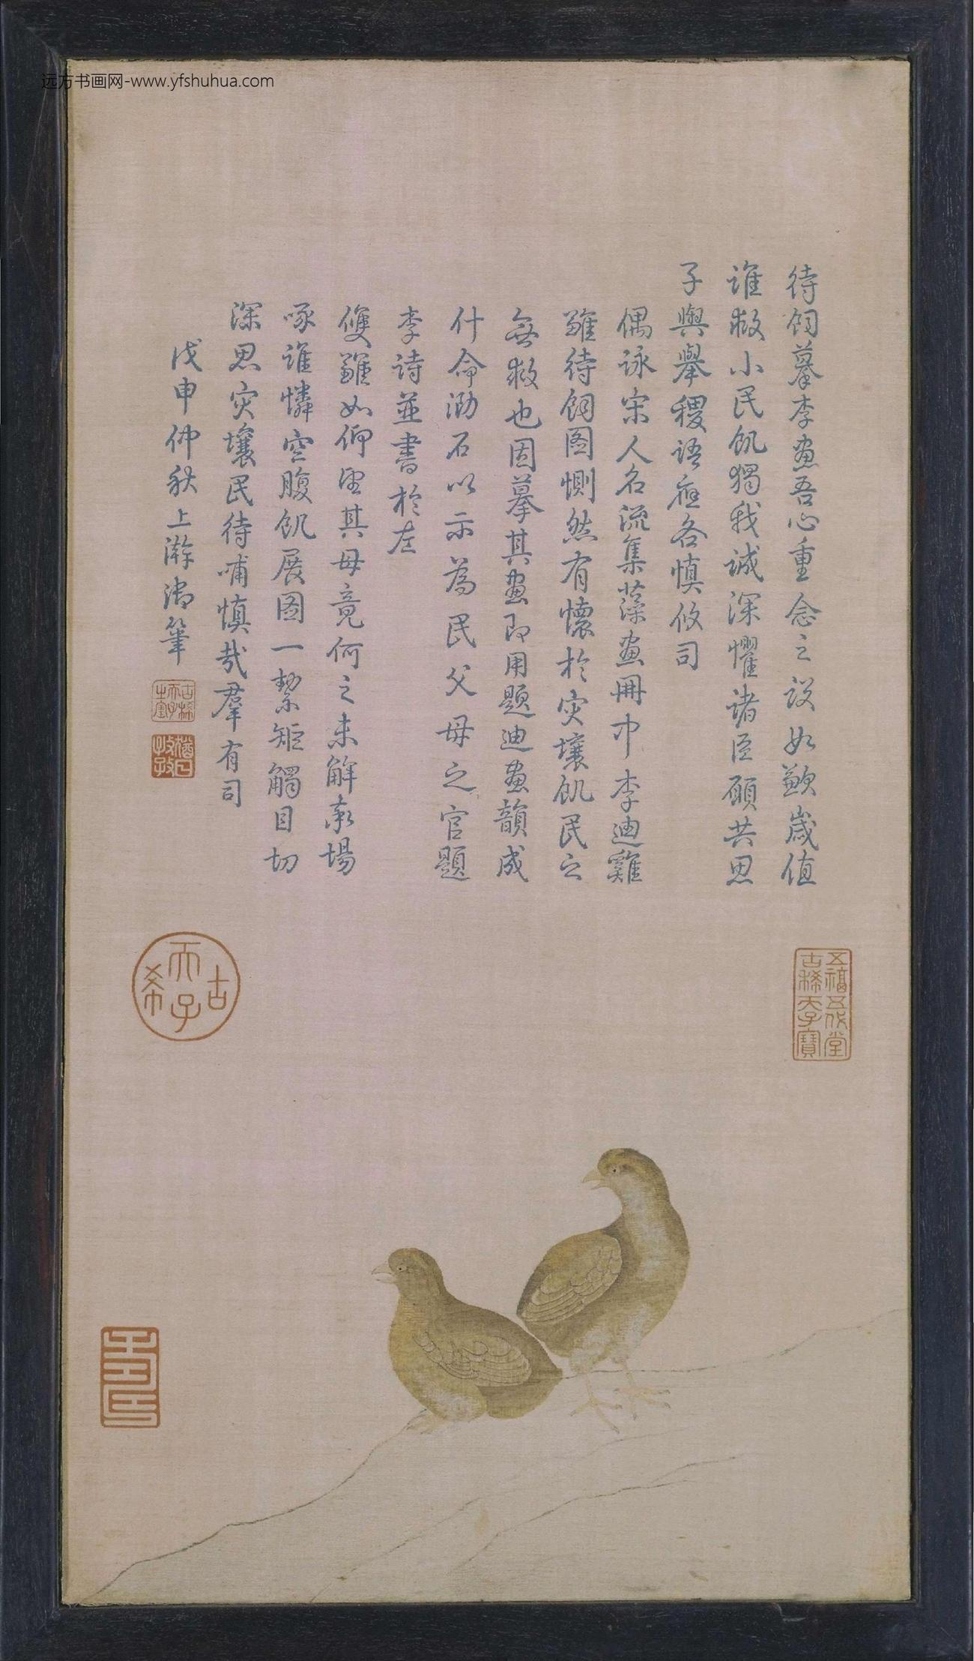 远方书画网-www.yfshuhua.com
待飼摹李畫吾心重念之設如歉歲值
誰救小民飢獨我誠深懼諸臣願共思
子輿舉稷語應各慎攸司
偶詠宋人名流集藻畫冊中李迪雞
雛待飼圖惻然有懷於災壤飢民之
無救也因摹其畫即用題迪畫韻成
什命泐石以示為民父母之官題
李詩並書於左
雙雛如仰望其母竟何之未解牽場
啄誰憐空腹飢展圖一絜矩觸目切
深思災壤民待哺慎哉羣有司
戊申仲秋上澣御筆
古稀天子之寶
猶日孜孜
古希天子
五福五代堂
古稀天子寶